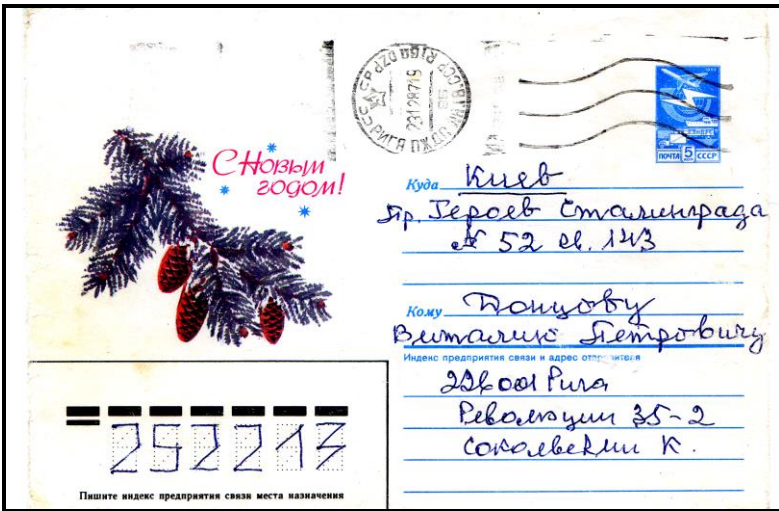 С Новым
годом!
РИГА ПЖДП
23128719
RIGA DZP
ПОЧТА 5 СССР
Куда Киев
Пр. Героев Сталинграда
№ 52 кв. 143
Кому Донцову
Виталию Петровичу
Индекс предприятия связи и адрес отправителя
226001 Рига
Революции 35-2
Сокольский К.
252213
Пишите индекс предприятия связи места назначения